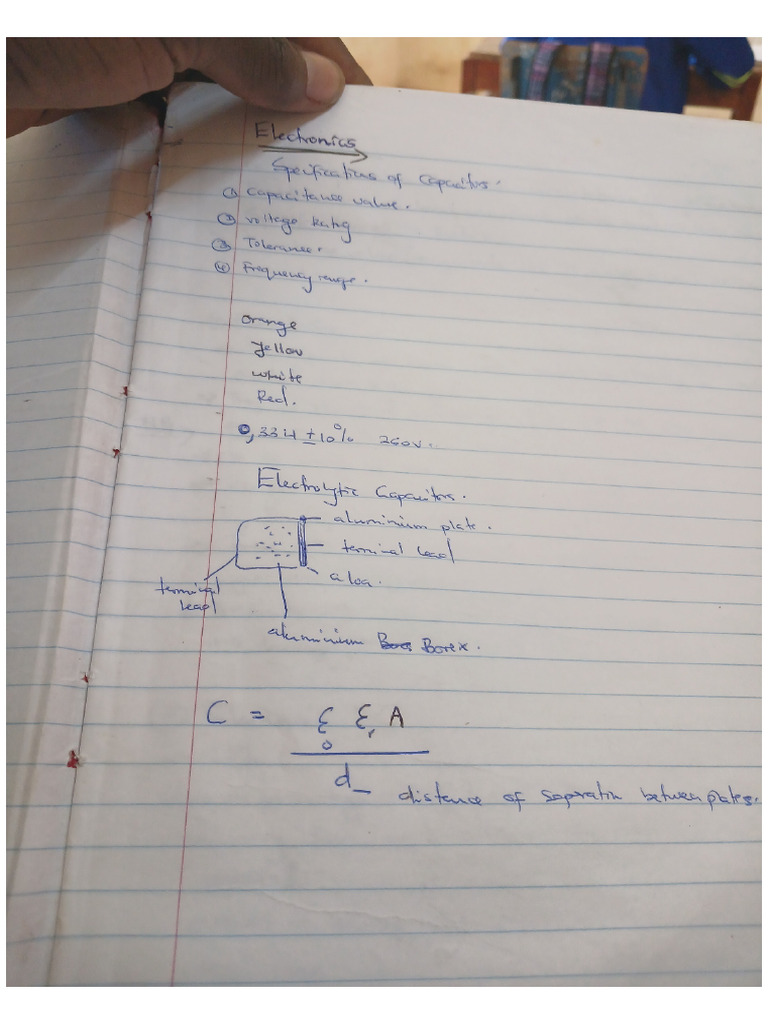 Electronics
Specifications of Capacitors.
① Capacitance value.
② voltage Rating
③ Tolerance.
④ Frequency range.
orange
yellow
white
Red.
0,33 ± 10% 250v.
Electrolytic Capacitors.
aluminium plate.
terminal lead
terminal
lead
aluminium Borix.
C = ε₀ εᵣ A
d
distance of sepratin between plates.